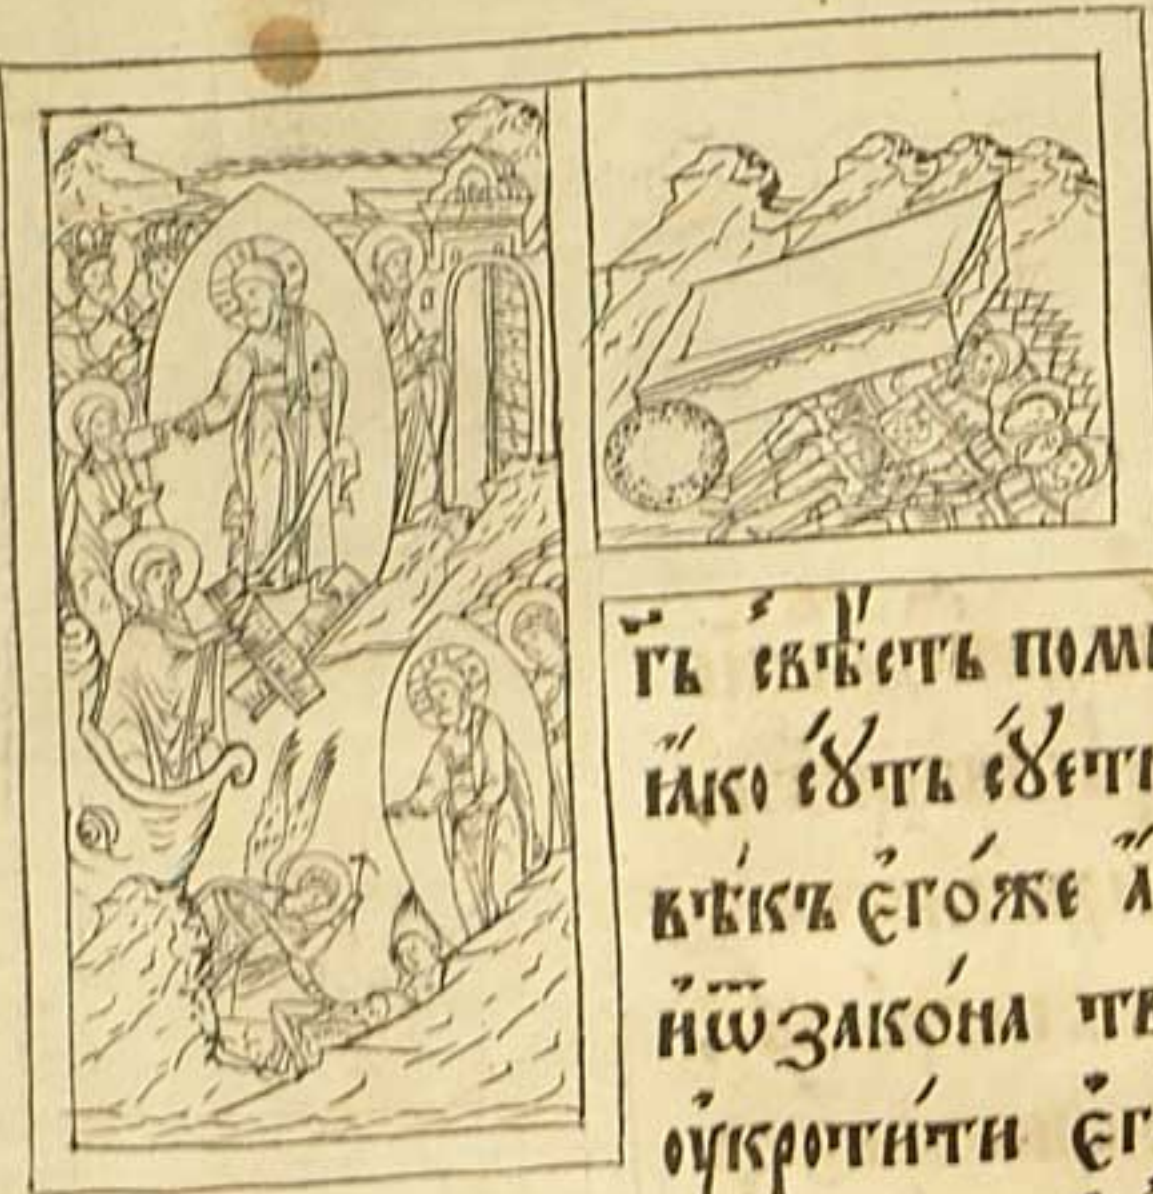 гь҃ свѣ́сть пом
ꙗ҆́ко сꙋ́ть сꙋ́ет
вѣкъ є҆го́же а҆
и҆ ѿ зако́на тв
оу҆кроти́ти є҆г